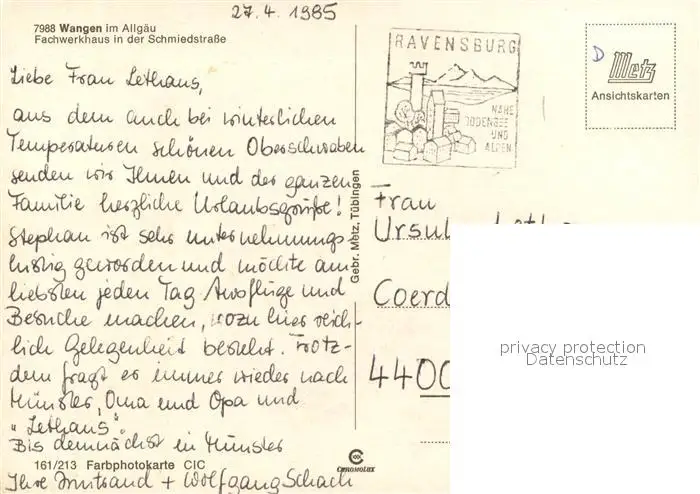 27.4.1985
7988 Wangen im Allgäu
Fachwerkhaus in der Schmiedstraße
Liebe Frau Lethaus,
aus dem auch bei winterlichen
Temperaturen schönen Oberschwaben
senden wir Ihnen und der ganzen
Familie herzliche Urlaubsgrüße!
Stephan ist sehr unternehmungs-
lustig geworden und möchte am
liebsten jeden Tag Ausflüge und
Besuche machen, wozu hier reich-
lich Gelegenheit besteht. Trotz-
dem fragt er immer wieder nach
Münster, Oma und Opa und
"Lethaus".
Bis demnächst in Münster
Ihre Irmtraud + Wolfgang Schach
161/213 Farbphotokarte CIC
CROMOLUX
Gebr. Metz, Tübingen
RAVENSBURG
NAHE
BODENSEE
UND
ALPEN
D
Metz
Ansichtskarten
Frau
Ursul
Coerd
4400
privacy protection
Datenschutz